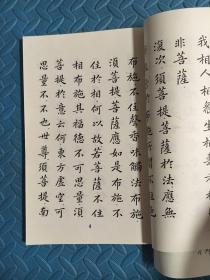 我相人相眾生相
非菩薩
復次須菩提菩薩於法應無
布施不住聲香味觸法布施
須菩提菩薩應如是布施不
住於相何以故若菩薩不住
相布施其福德不可思量須
菩提於意云何東方虛空可
思量不不也世尊須菩提南
4